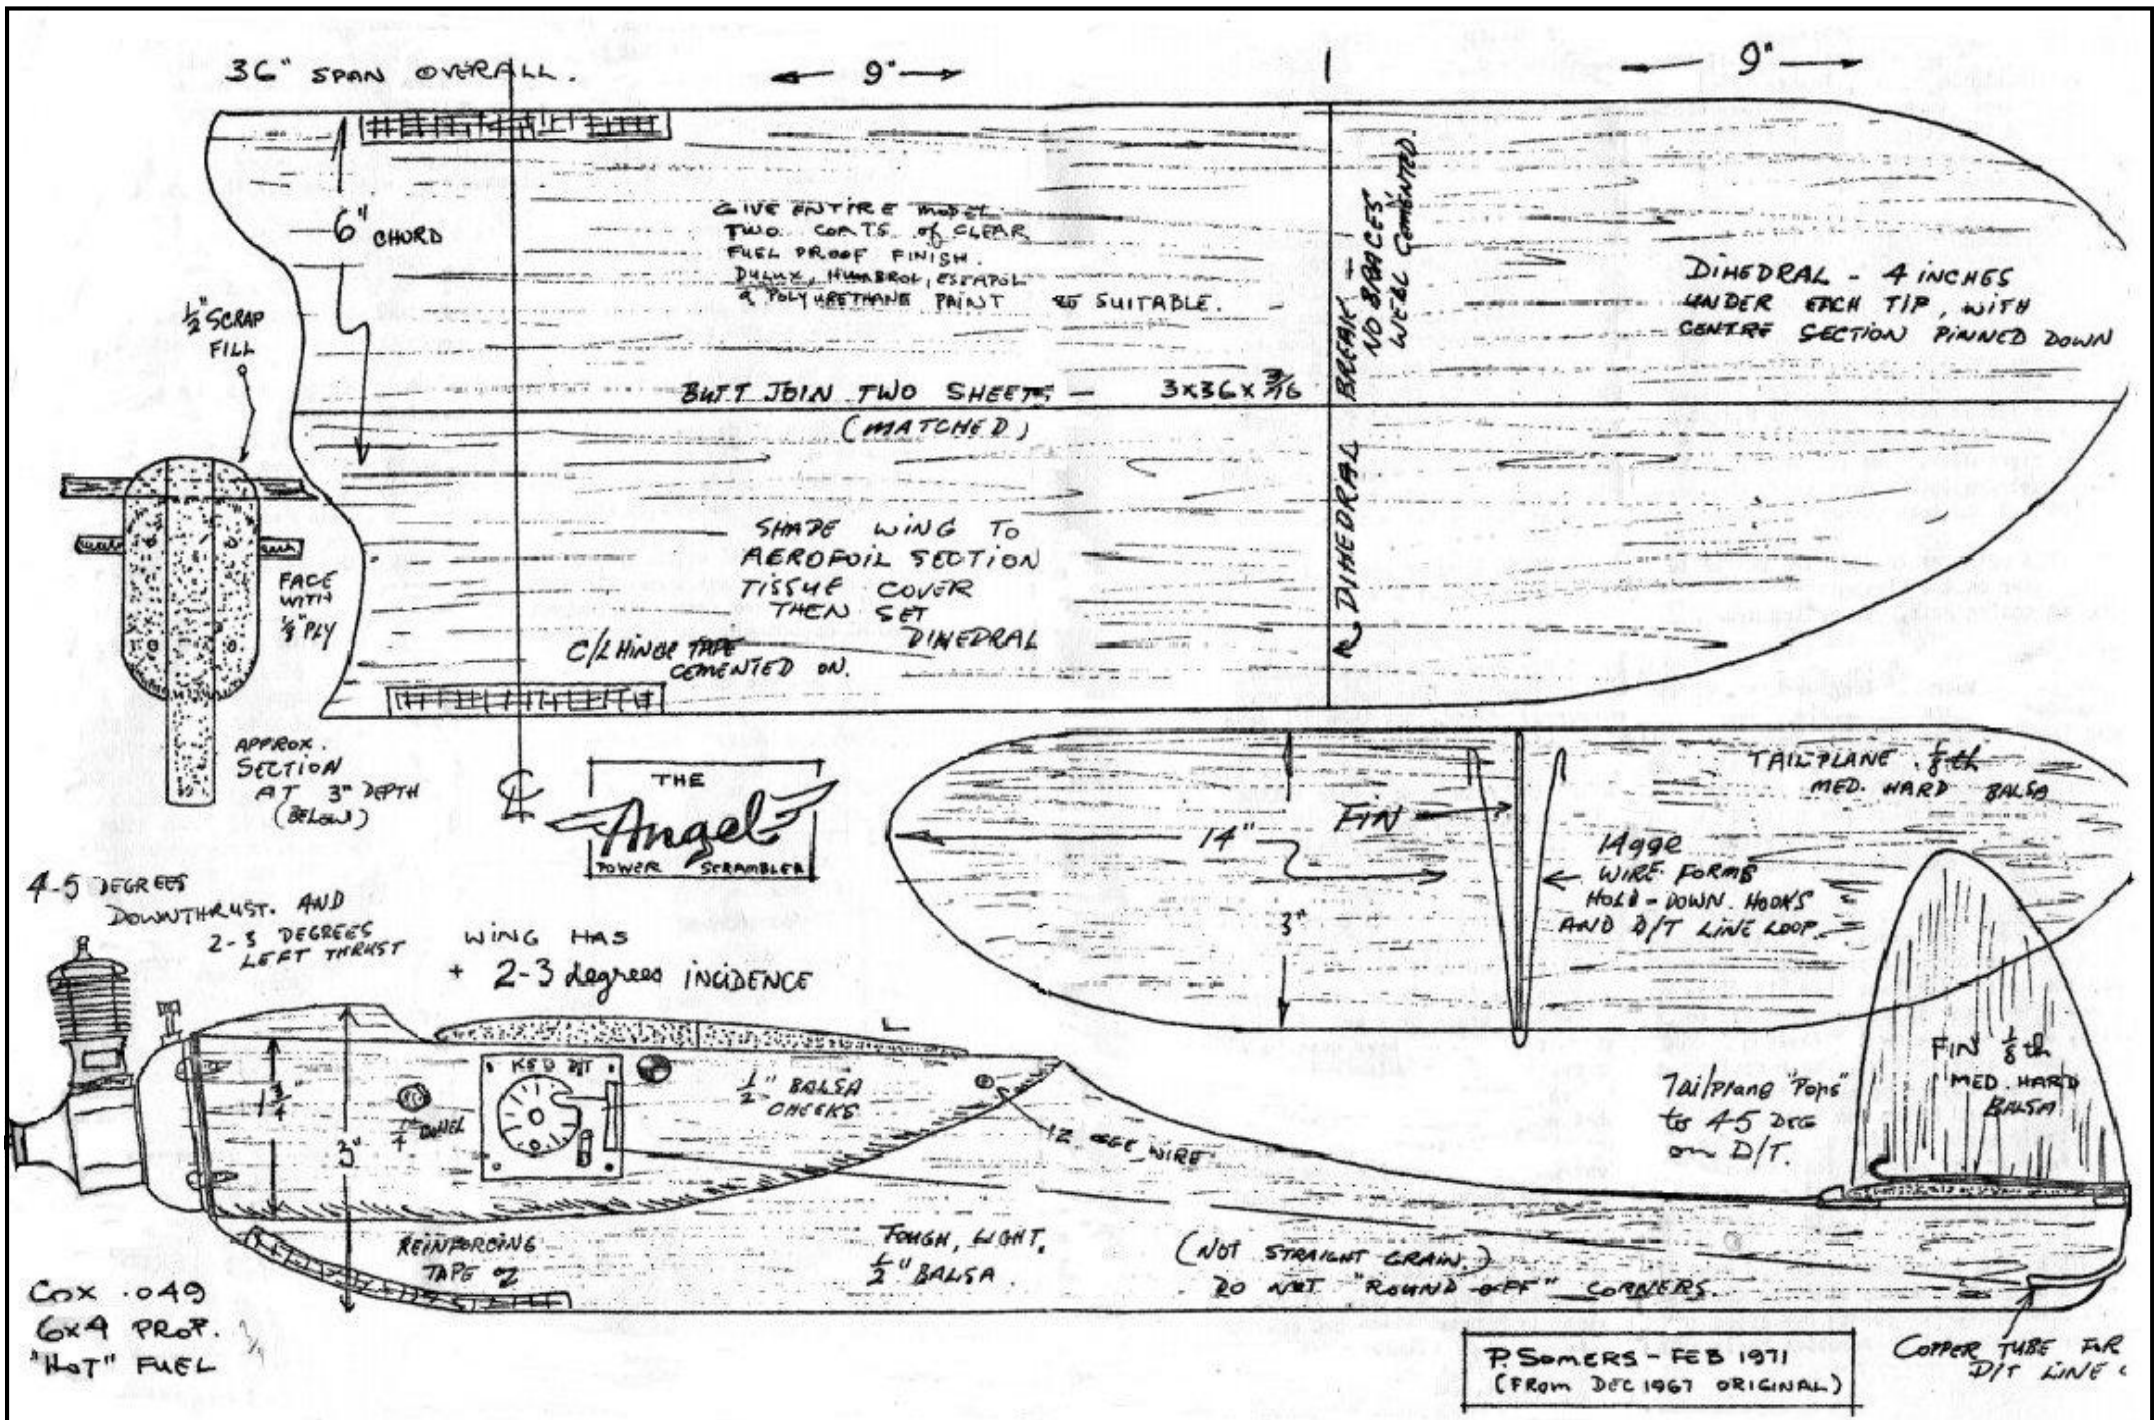 36" SPAN OVERALL.
9"
9"
6" CHORD
GIVE ENTIRE MODEL
TWO COATS of CLEAR
FUEL PROOF FINISH.
DULUX, HUMBROL, ESTAPOL
& POLYURETHANE PAINT SUITABLE.
DIHEDRAL BREAK —
NO BRACES
WELL CEMENTED.
DIHEDRAL - 4 INCHES
UNDER EACH TIP, WITH
CENTRE SECTION PINNED DOWN
1/2" SCRAP
FILL
BUTT JOIN TWO SHEETS — 3x36x3/16
(MATCHED)
SHAPE WING TO
AEROFOIL SECTION
TISSUE COVER
THEN SET
DIHEDRAL
C/L HINGE TAPE
CEMENTED ON.
FACE
WITH
1/8" PLY
APPROX.
SECTION
AT 3" DEPTH
(BELOW)
CL
THE
Angel
POWER SCRAMBLER
TAILPLANE 1/8 th
MED. HARD BALSA
FIN
14"
3"
14gge
WIRE FORMS
HOLD-DOWN HOOKS
AND D/T LINE LOOP.
4-5 DEGREES
DOWNTHRUST. AND
2-3 DEGREES
LEFT THRUST
WING HAS
+ 2-3 degrees INCIDENCE
1 3/4"
3"
1/4" DOWEL
KSB D/T
1/2" BALSA
CHEEKS
12 GGE WIRE
Tailplane "Pops"
to 45 DEG
on D/T.
FIN 1/8 th
MED HARD
BALSA
REINFORCING
TAPE
TOUGH, LIGHT,
1/2" BALSA.
(NOT STRAIGHT GRAIN.)
DO NOT "ROUND-OFF" CORNERS.
COX .049
6x4 PROP.
"HOT" FUEL
P. SOMERS - FEB 1971
(FROM DEC 1967 ORIGINAL)
COPPER TUBE FOR
D/T LINE